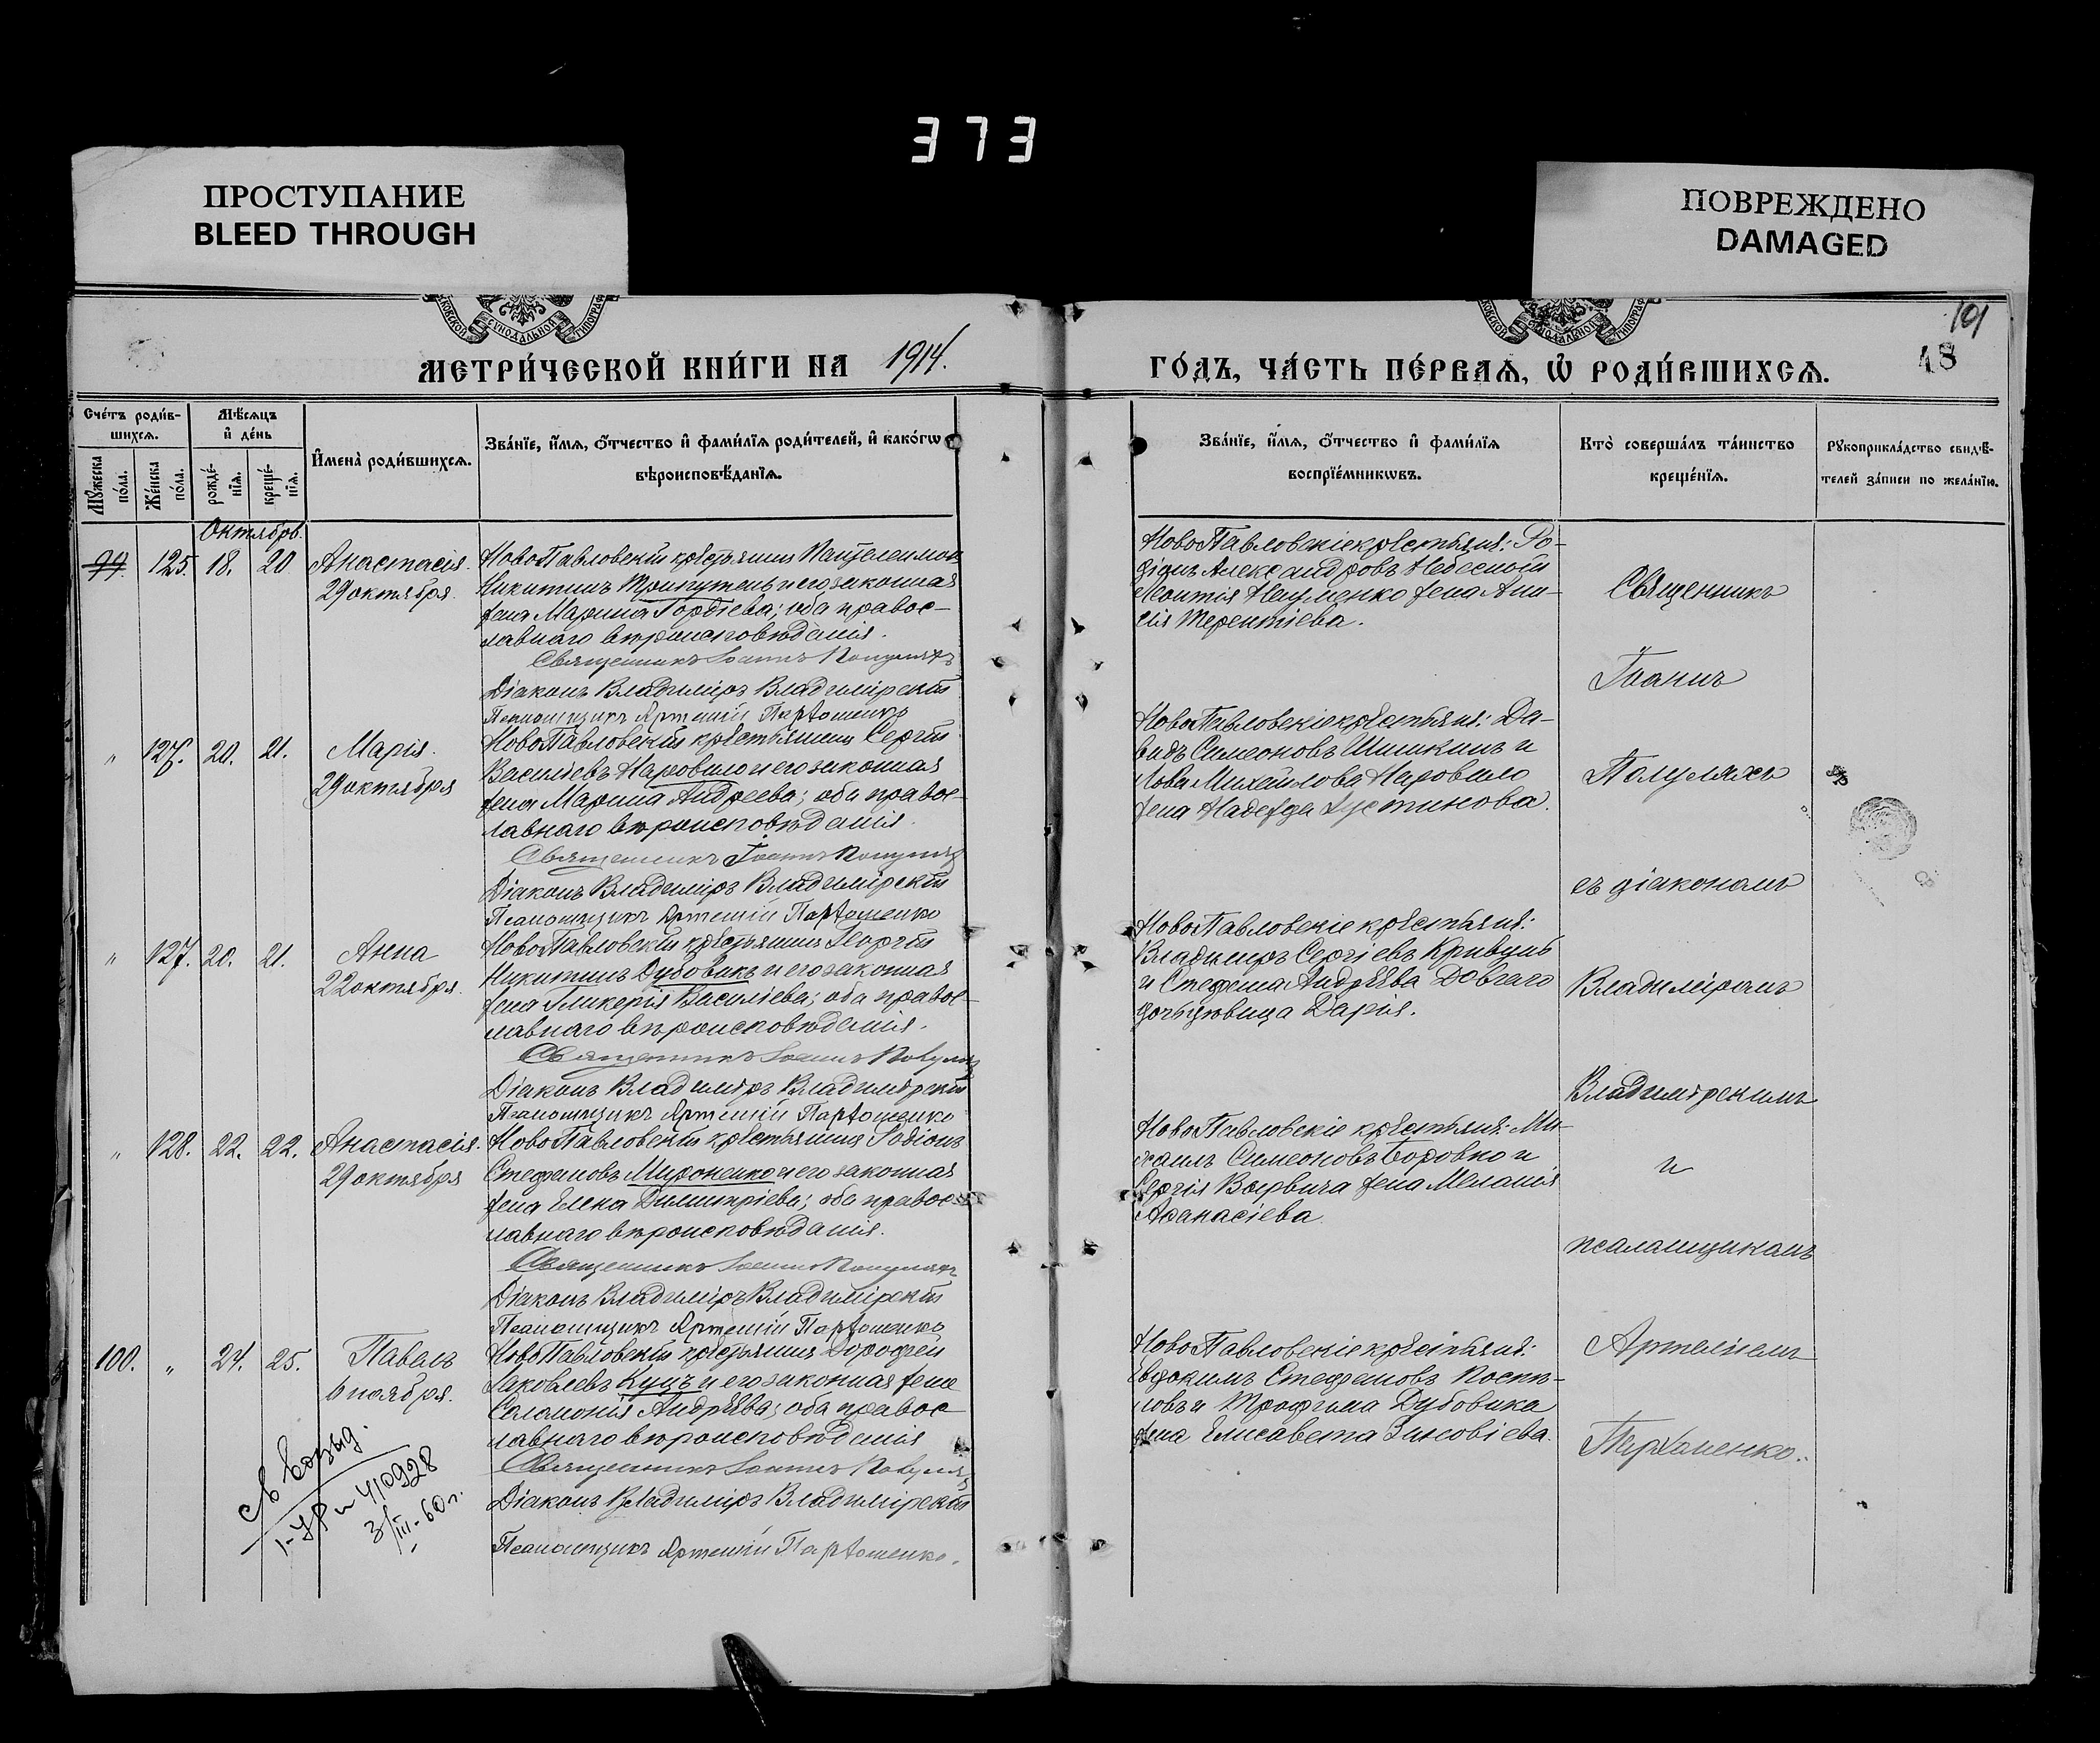 373
ПРОСТУПАНИЕ
BLEED THROUGH
ПОВРЕЖДЕНО
DAMAGED
СѴНОДАЛЬНОЙ
СѴНОДАЛЬНОЙ
101
48
МЕТРИ́ЧЕСКОЙ КНИ́ГИ НА 1914.
ГО́ДЪ, ЧА́СТЬ ПЕ́РВАѦ, Ѡ҆ РОДИ́ВШИХСѦ.
Сче́тъ роди́вшихсѧ.
Мѣ́сѧцъ и҆ де́нь
Мꙋ́жеска по́ла.
Же́нска по́ла.
рожде́нїѧ.
креще́нїѧ.
И҆мена̀ роди́вшихсѧ.
Зва́нїе, и҆́мѧ, ѻ҆́тчество и҆ фами́лїѧ роди́телей, и҆ како́гѡ
вѣроисповѣ́данїѧ.
Зва́нїе, и҆́мѧ, ѻ҆́тчество и҆ фами́лїѧ
воспрїе́мникѡвъ.
Кто̀ соверша́лъ та́инство
креще́нїѧ.
Рꙋкоприкла́дство свидѣ́-
телей за́писи по жела́нїю.
Октябрь.
99. 125. 18. 20 Анастасія.
29 октября.
НовоПавловскій крестьянинъ Пантелеимон
Никитинъ Трипутень и его законная
жена Марина Гордіева; оба правос-
лавнаго вѣроисповѣданія.
Священникъ Іоаннъ Полулях
Діаконъ Владиміръ Владимірскій
Псаломщикъ Артемій Пархоменко
НовоПавловскіе крестьяне: Ро-
діонъ Александровъ Небесный
Леонтія Науменко жена Ани-
сія Терентіева.
" 127. 20. 21. Марія.
29 октября
НовоПавловскій крестьянинъ Сергій
Василіевъ Наровило и его законная
жена Марина Андреева; оба правос-
лавнаго вѣроисповѣданія.
Священникъ Іоаннъ Полулях
Діаконъ Владиміръ Владимірскій
Псаломщикъ Артемій Пархоменко
НовоПавловскіе крестьяне: Да-
видъ Симеоновъ Шишкинъ и
Іова Михайлова Наровило
жена Надежда Іустинова.
" 127. 20. 21. Анна
22 октября.
НовоПавловскій крестьянинъ Георгій
Никитинъ Дубовикъ и его законная
жена Гликерія Василіева; оба правос-
лавнаго вѣроисповѣданія.
Священникъ Іоаннъ Полулях
Діаконъ Владиміръ Владимірскій
Псаломщикъ Артемій Пархоменко
НовоПавловскіе крестьяне:
Владиміръ Сергіевъ Кривуць
и Стефана Андреева Довгаго
дочь девица Дарія.
" 128. 22. 22. Анастасія.
29 октября
НовоПавловскій крестьянинъ Родіонъ
Стефановъ Мироненко и его законная
жена Елена Димитріева; оба правос-
лавнаго вѣроисповѣданія.
Священникъ Іоаннъ Полулях
Діаконъ Владиміръ Владимірскій
Псаломщикъ Артемій Пархоменко
НовоПавловскіе крестьяне: Ми-
хаилъ Симеоновъ Боровко и
Сергія жена Меланія
Аѳанасіева.
100. " 24. 25. Павелъ
6 ноября.
НовоПавловскій крестьянинъ Дорофей
Іаковлевъ Куцъ и его законная жена
Саломонія Андреева; оба правос
лавнаго вѣроисповѣданія
Священникъ Іоаннъ Полулях
Діаконъ Владиміръ Владимірскій
Псаломщикъ Артемій Пархоменко.
НовоПавловскіе крестьяне:
Евдокимъ Стефановъ
и Трофима Дубовика
жена Елисавета Зиновіева.
Священникъ
Іоаннъ
Полуляхъ
съ діакономъ
Владиміромъ
Владимірскимъ
и
псаломщикомъ
Артеміемъ
Пархоменко.
410928
3/III-60г.